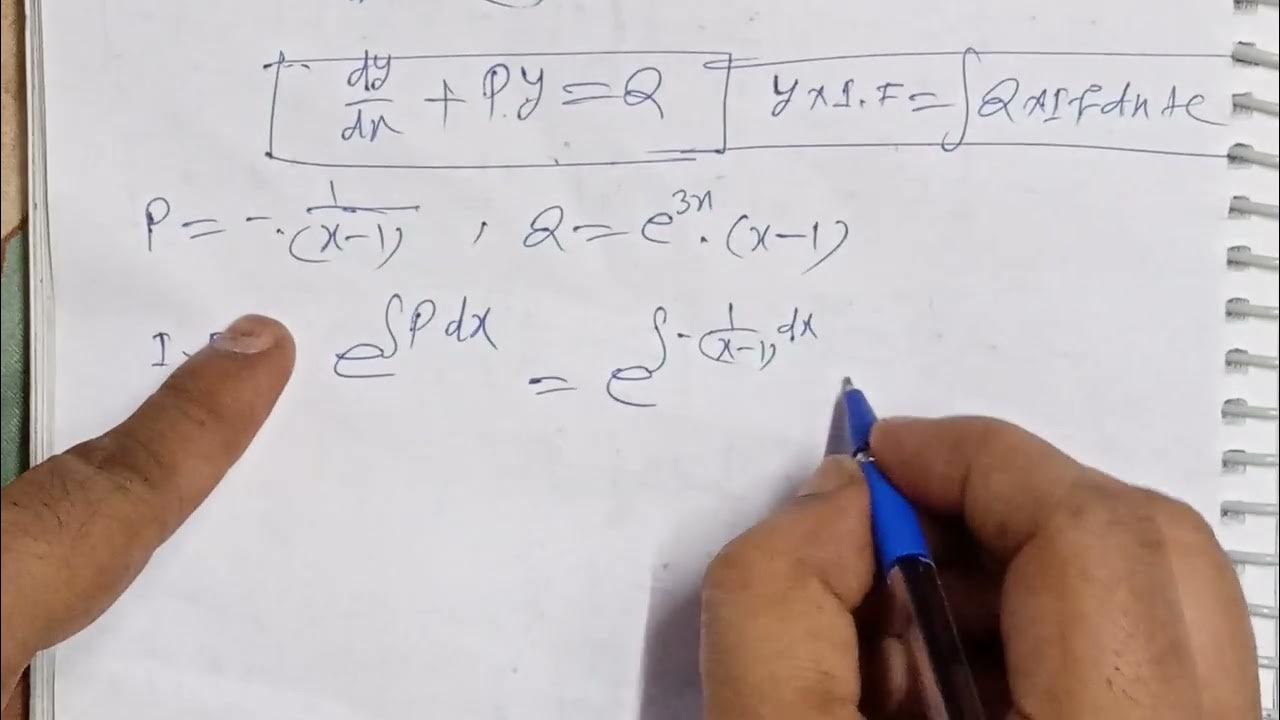 dy/dx + P.y = Q   y x I.F = ∫ Q x I.F dx + c
P = - 1/(x-1) , Q = e^3x . (x-1)
e^∫P dx = e^∫ - 1/(x-1) dx